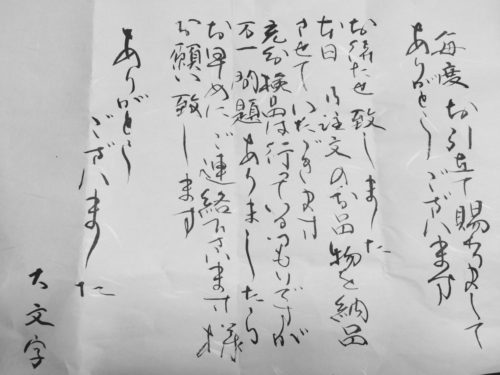 毎度お引立て賜りまして
ありがとうございます
お待たせ致しました
本日御注文のお品物を納品
させていただきます
充分検品は行っているつもりですが
万一問題ありましたら
お早めにご連絡下さいます様
お願い致します
ありがとう
ございました
大文字